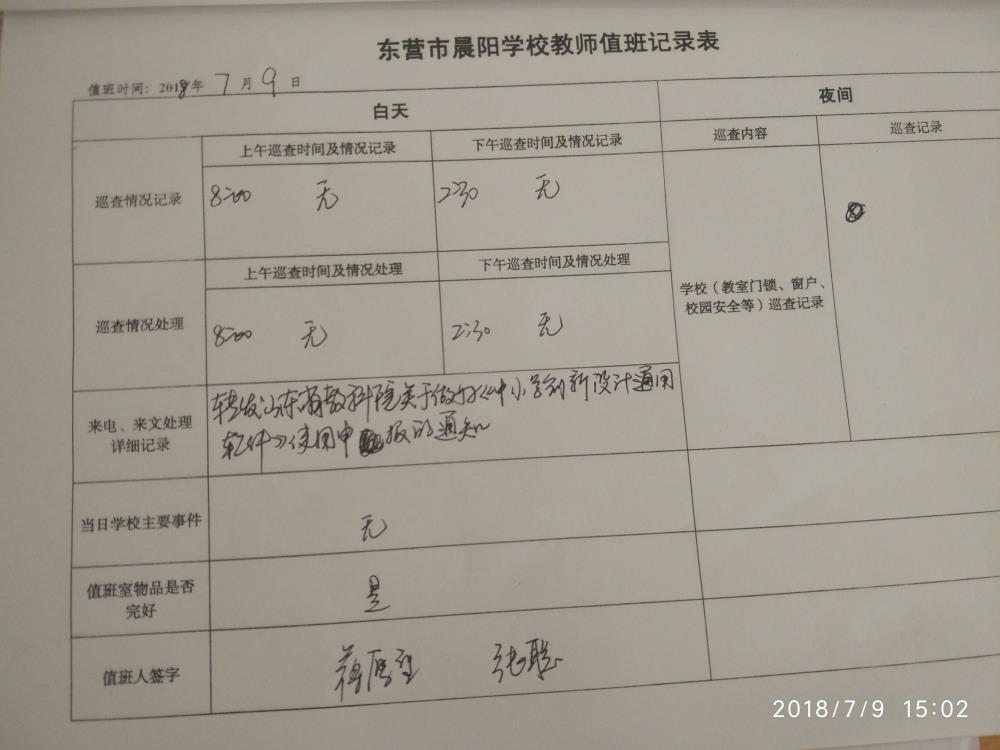 东营市晨阳学校教师值班记录表
值班时间：2018年 7 月 9 日
白天
夜间
上午巡查时间及情况记录
下午巡查时间及情况记录
巡查内容
巡查记录
巡查情况记录
8:00 无
2:30 无
上午巡查时间及情况处理
下午巡查时间及情况处理
学校（教室门锁、窗户、
校园安全等）巡查记录
巡查情况处理
8:00 无
2:30 无
来电、来文处理
详细记录
转发山东省教科院关于做好《中小学创新设计通用
软件》使用申报的通知
当日学校主要事件
无
值班室物品是否
完好
是
值班人签字
张聪
2018/7/9 15:02